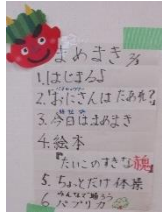 まめまき 2/3
1.「はじまるよ」
2.「おにさんはだあれ?」
3.今日はまめまき
4.絵本
「たいこのすきな鬼」
5.ちょっとだけ体操
みんなで踊ろう
6 パプリカ